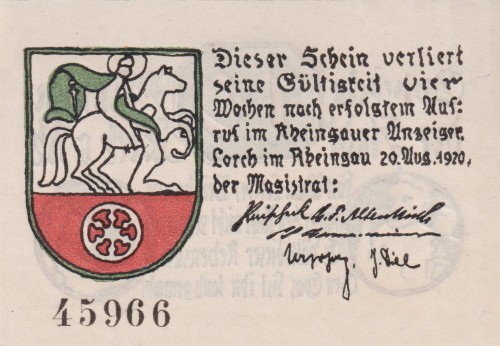 Dieser Schein verliert
seine Gültigkeit vier
Wochen nach erfolgtem Auf-
ruf im Rheingauer Anzeiger.
Lorch im Rheingau 20. Aug. 1920,
der Magistrat:
45966